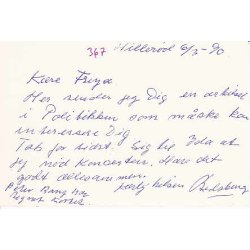 367 Hillerød 6/3-90
Kære Freja
Her sender jeg Dig en artikel
i Politikken som måske kan
interessere Dig
Tak for sidst. Sig til Ida at
jeg nød koncerten. Hav det
godt allesammen.
Kærlig hilsen